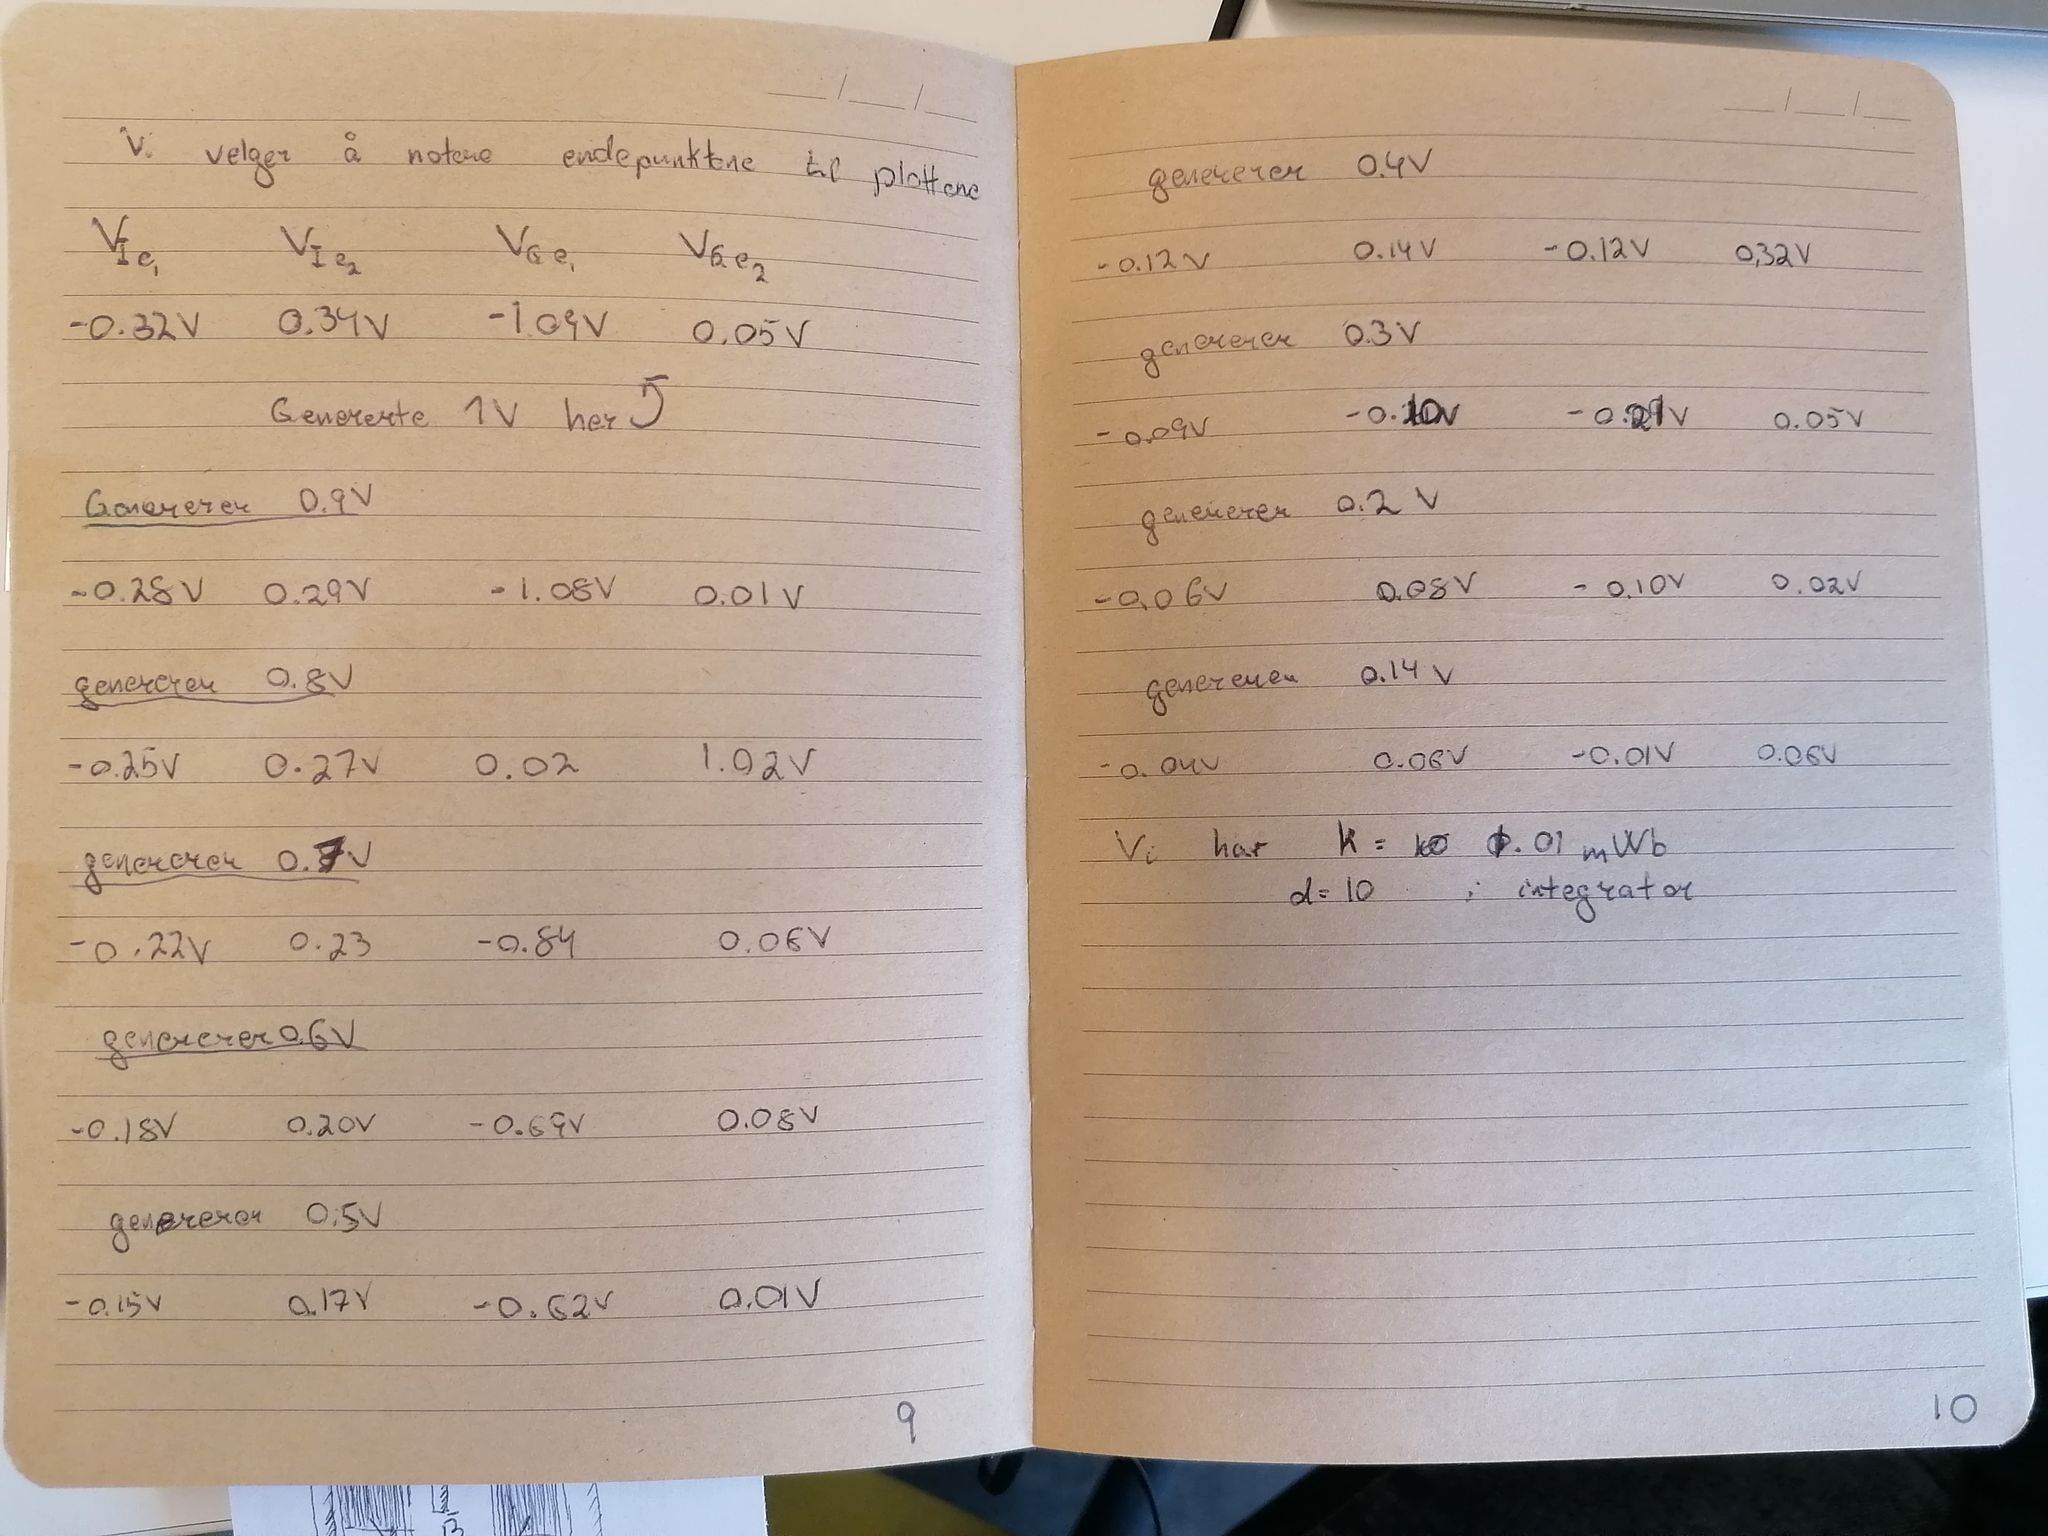 Vi velger å notere endepunktene til plottene
V_Ie₁ V_Ie₂ V_Ge₁ V_Ge₂
-0.32V 0.34V -1.09V 0.05V
Genererte 1V her
Genererer 0.9V
-0.28V 0.29V -1.08V 0.01V
genererer 0.8V
-0.25V 0.27V 0.02 1.02V
genererer 0.7V
-0.22V 0.23 -0.84 0.06V
genererer 0.6V
-0.18V 0.20V -0.69V 0.08V
genererer 0.5V
-0.15V 0.17V -0.62V 0.01V
9
genererer 0.4V
-0.12V 0.14V -0.12V 0,32V
genererer 0.3V
-0.09V -0.10V 0.05V
genererer 0.2V
-0,06V 0.08V -0.10V 0.02V
genereren 0.14V
-0.04V 0.06V -0.01V 0.06V
Vi har k = .01 mWb
d=10 i integrator
10